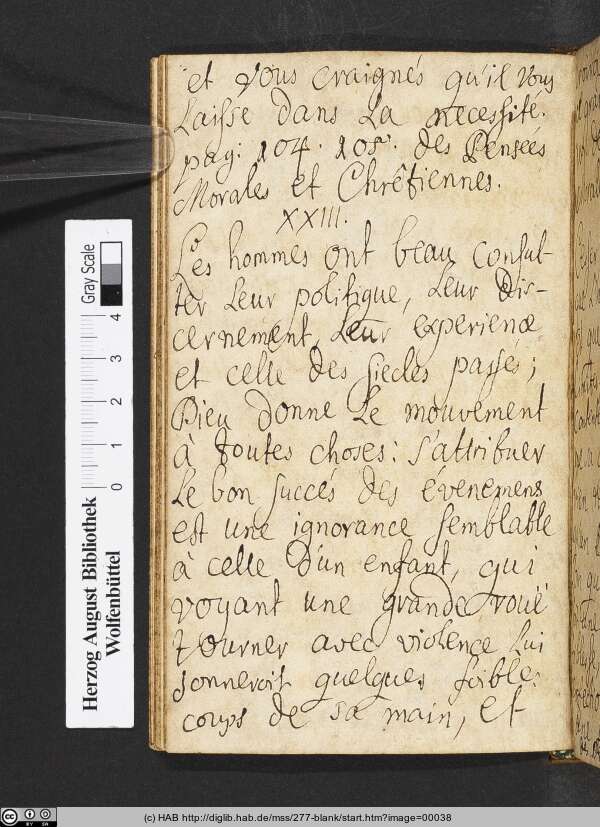 et vous craignés qu'il vous
Laisse dans La necessité.
pag: 104. 105. des Pensées
Morales et Chrêtiennes.
XXIII.
Les hommes ont beau consul-
ter Leur politique, Leur dis-
cernement, Leur experience
et celle des siecles passés;
Dieu donne Le mouvement
à toutes choses: s'attribuer
Le bon succés des évenemens
est une ignorance semblable
à celle d'un enfant, qui
voyant une grande rouë
tourner avec violence Lui
donneroit quelques foibles
coups de sa main, et
Gray Scale
0 1 2 3 4
Herzog August Bibliothek
Wolfenbüttel
(c) HAB http://diglib.hab.de/mss/277-blank/start.htm?image=00038
cc BY SA